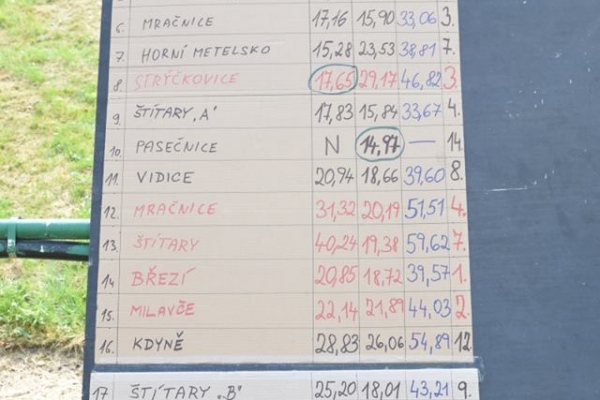 6. MRAČNICE 17,16 15,90 33,06 3.
7. HORNÍ METELSKO 15,28 23,53 38,81 7.
8. STRÝČKOVICE 17,65 29,17 46,82 3.
9. ŠTÍTARY „A" 17,83 15,84 33,67 4.
10. PASEČNICE N 14,97 — 14.
11. VIDICE 20,94 18,66 39,60 8.
12. MRAČNICE 31,32 20,19 51,51 4.
13. ŠTÍTARY 40,24 19,38 59,62 7.
14. BŘEZÍ 20,85 18,72 39,57 1.
15. MILAVČE 22,14 21,89 44,03 2.
16. KDYNĚ 28,83 26,06 54,89 12.
17 ŠTÍTARY „B" 25,20 18,01 43,21 9.